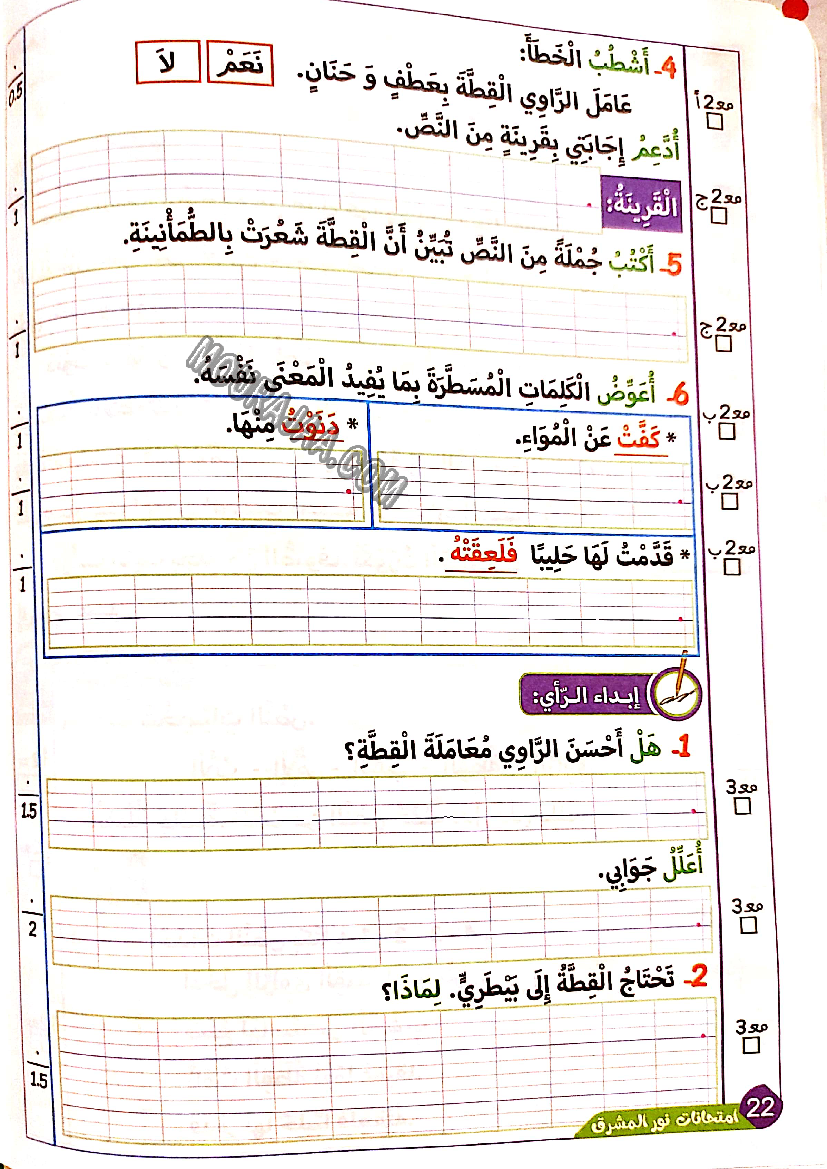 4- أَشْطُبُ الْخَطَأَ:
نَعَمْ
لاَ
عَامَلَ الرَّاوِي الْقِطَّةَ بِعَطْفٍ وَ حَنَانٍ.
أُدَّعِمُ إِجَابَتِي بِقَرِينَةٍ مِنَ النَّصِّ.
الْقَرِينَةُ:
5- أَكْتُبُ جُمْلَةً مِنَ النَّصِّ تُبَيِّنُ أَنَّ الْقِطَّةَ شَعُرَتْ بِالطُّمَأْنِينَةِ.
6- أُعَوِّضُ الْكَلِمَاتِ الْمُسَطَّرَةَ بِمَا يُفِيدُ الْمَعْنَى نَفْسَهُ.
* كَفَّتْ عَنْ الْمُوَاءِ.
* دَنَوْتُ مِنْهَا.
* قَدَّمْتُ لَهَا حَلِيبًا فَلَعِقَتْهُ .
إبـداء الـرّأي:
1- هَلْ أَحْسَنَ الرَّاوِي مُعَامَلَةَ الْقِطَّةِ؟
أُعَلِّلُ جَوَابِي.
2- تَحْتَاجُ الْقِطَّةُ إِلَى بَيْطَرِيٍّ. لِمَاذَا؟
مع2 أ
مع2 ج
مع2 ج
مع2 ب
مع2 ب
مع2 ب
مع3
مع3
مع3
0.5
1
1
1
1
1
1.5
2
1.5
MOURAJAA.COM
امتحانات نور المشرق
22